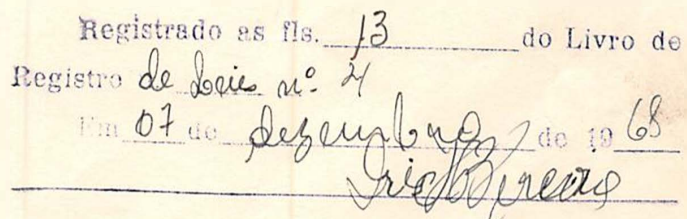 Registrado as fls. 13 do Livro de
Registro de Leis nº 4
Em 07 de dezembro de 1968